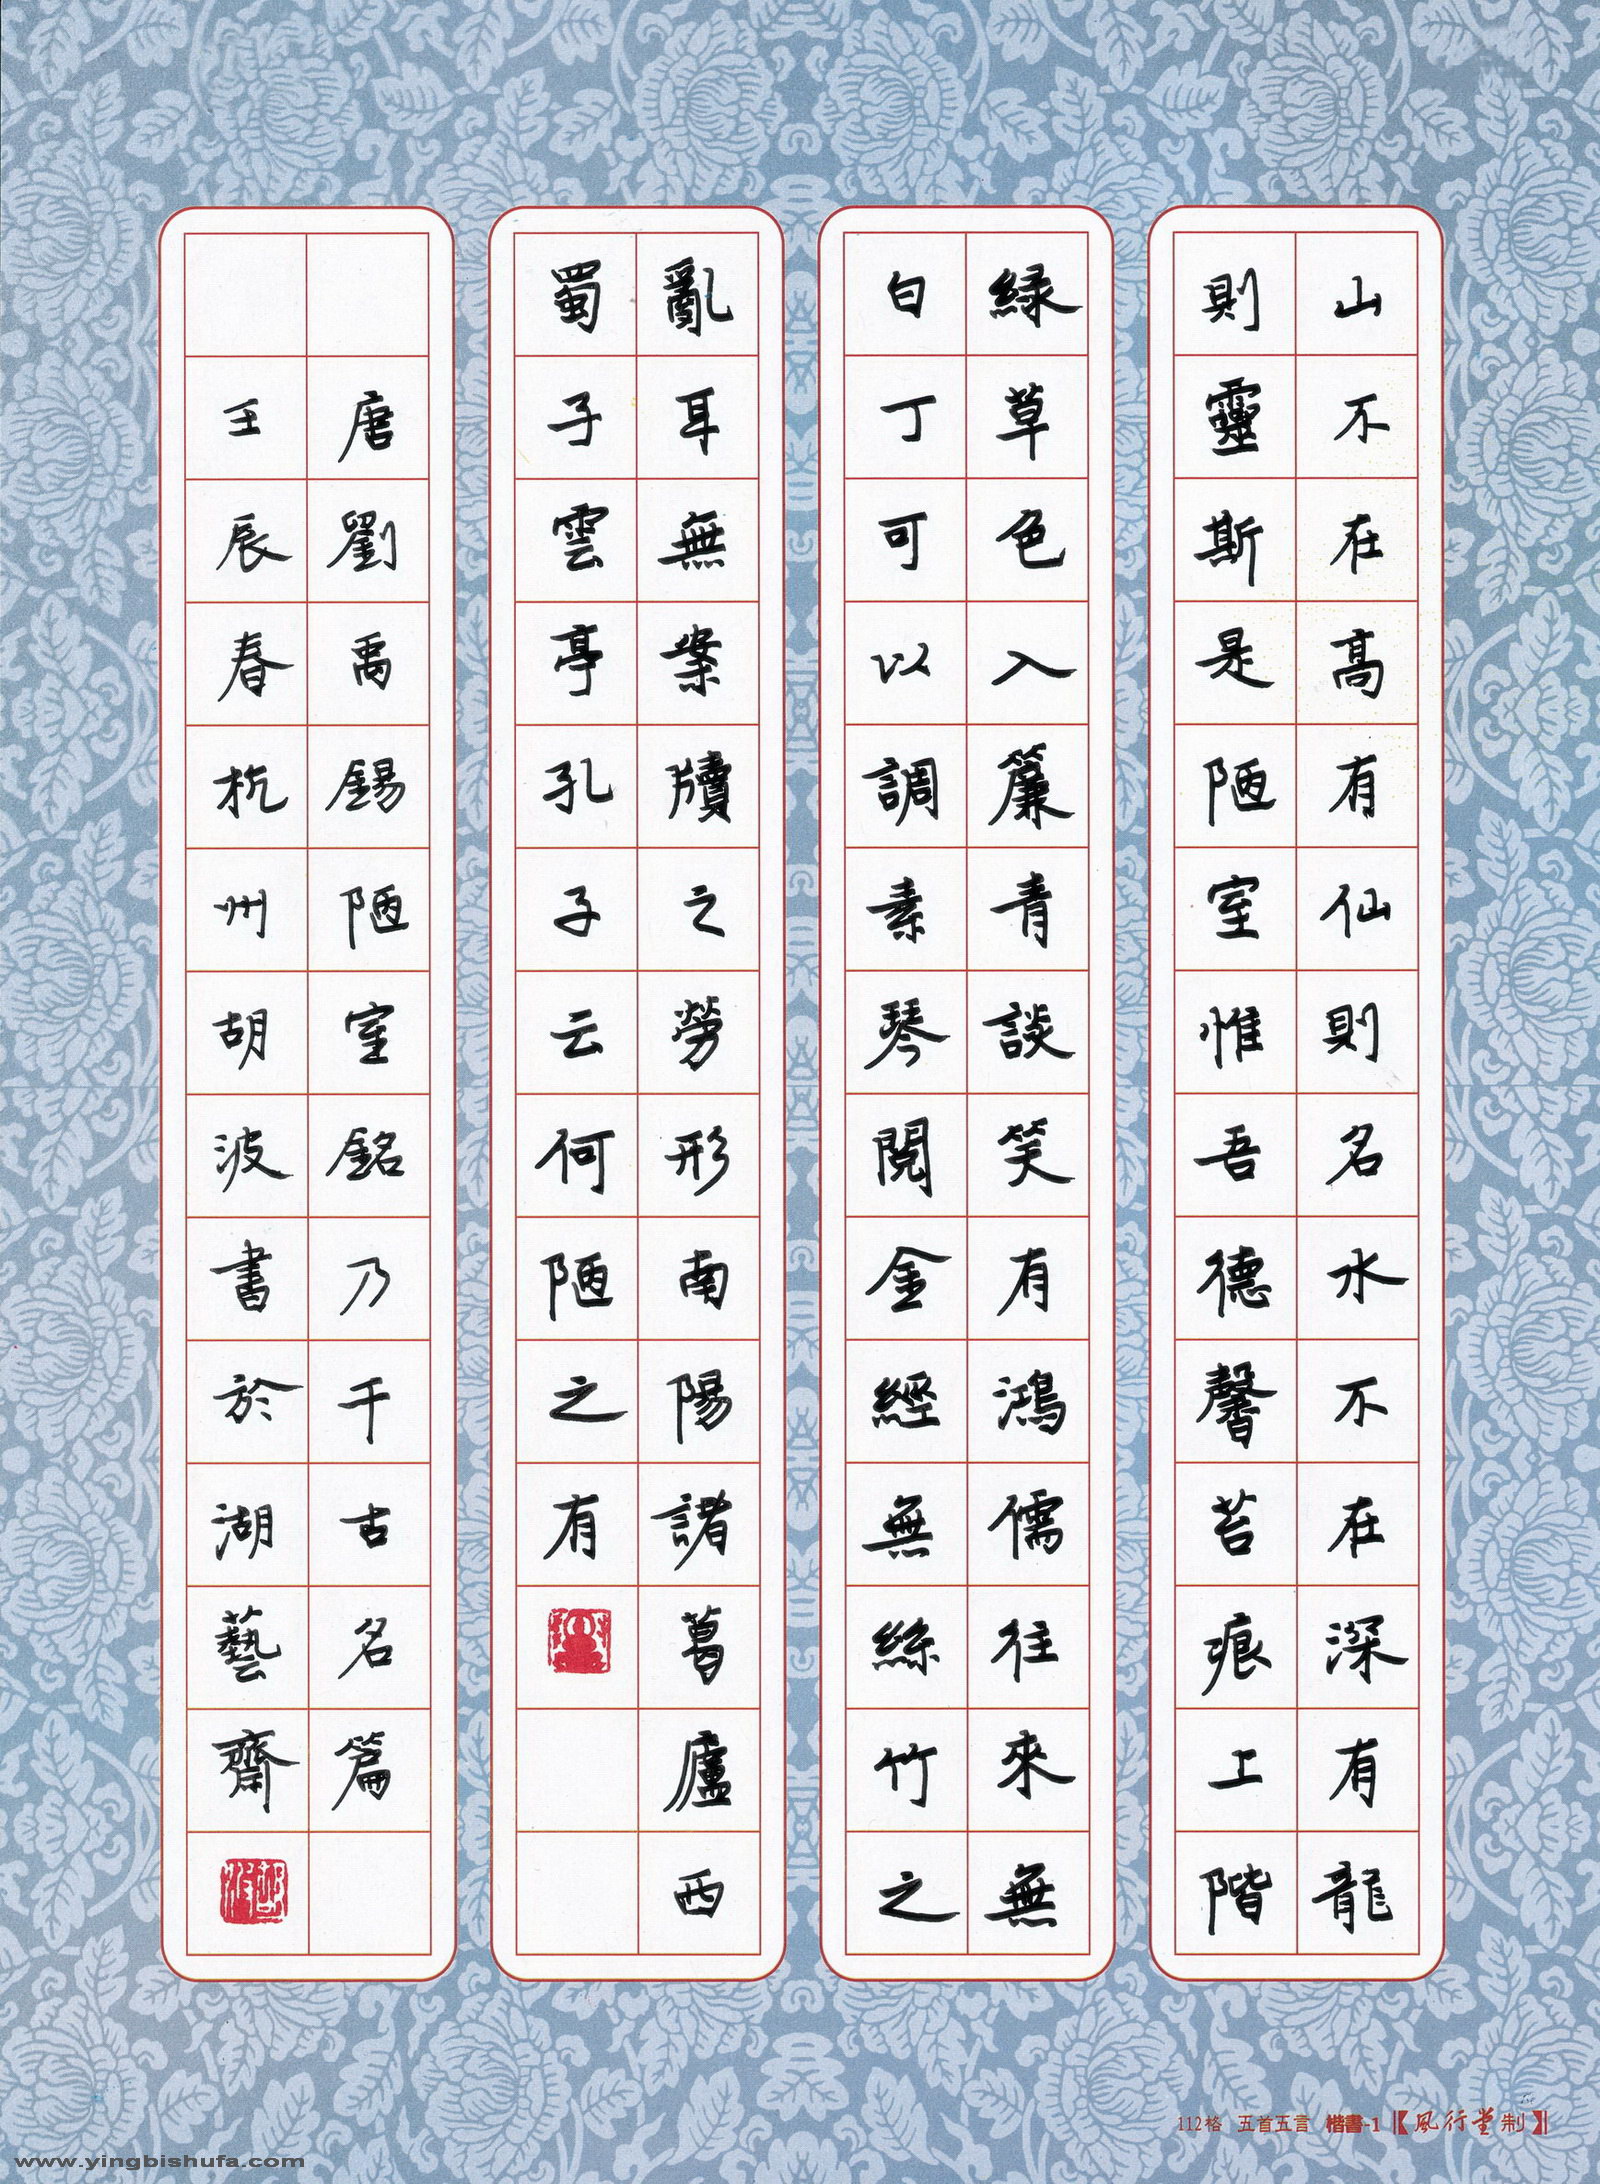 山不在高有仙則名水不在深有龍
則靈斯是陋室惟吾德馨苔痕上階
緑草色入簾青談笑有鴻儒往來無
白丁可以調素琴閱金經無絲竹之
亂耳無案牘之勞形南陽諸葛廬西
蜀子雲亭孔子云何陋之有
唐劉禹錫陋室銘乃千古名篇
壬辰春杭州胡波書於湖藝齋
112格 五首五言 楷書-1【風行堂制】
www.yingbishufa.com